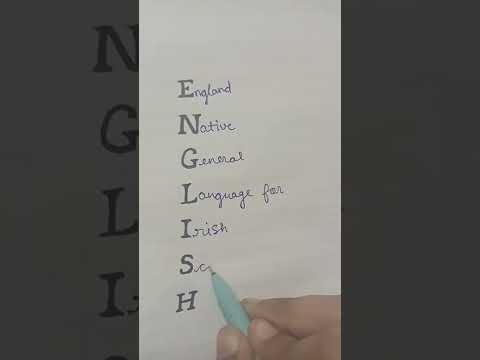 England
Native
General
Language for
Irish
Sc
H